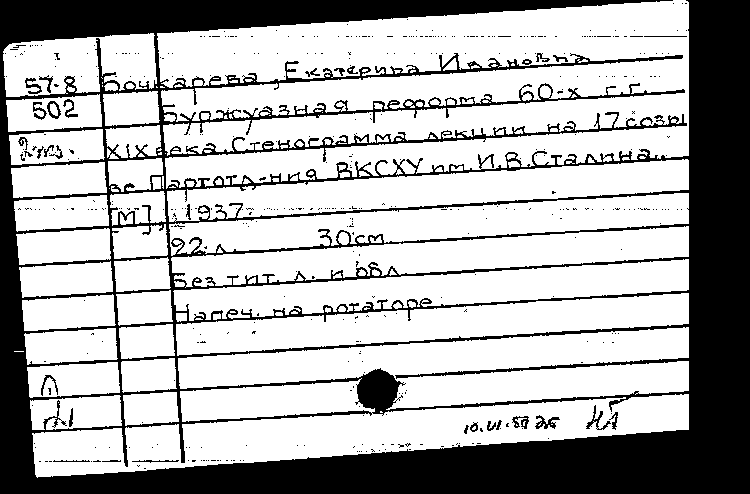 57-8 Бочкарева, Екатерина Ивановна
502 Буржуазная реформа 60-х г.г.
XIX века. Стенограмма лекции на 17 созы
ве Партотд-ния ВКСХУ им. И.В. Сталина.
[М], 1937.
22 л. 30 см
Без тит. л. и обл.
Напеч. на ротаторе.